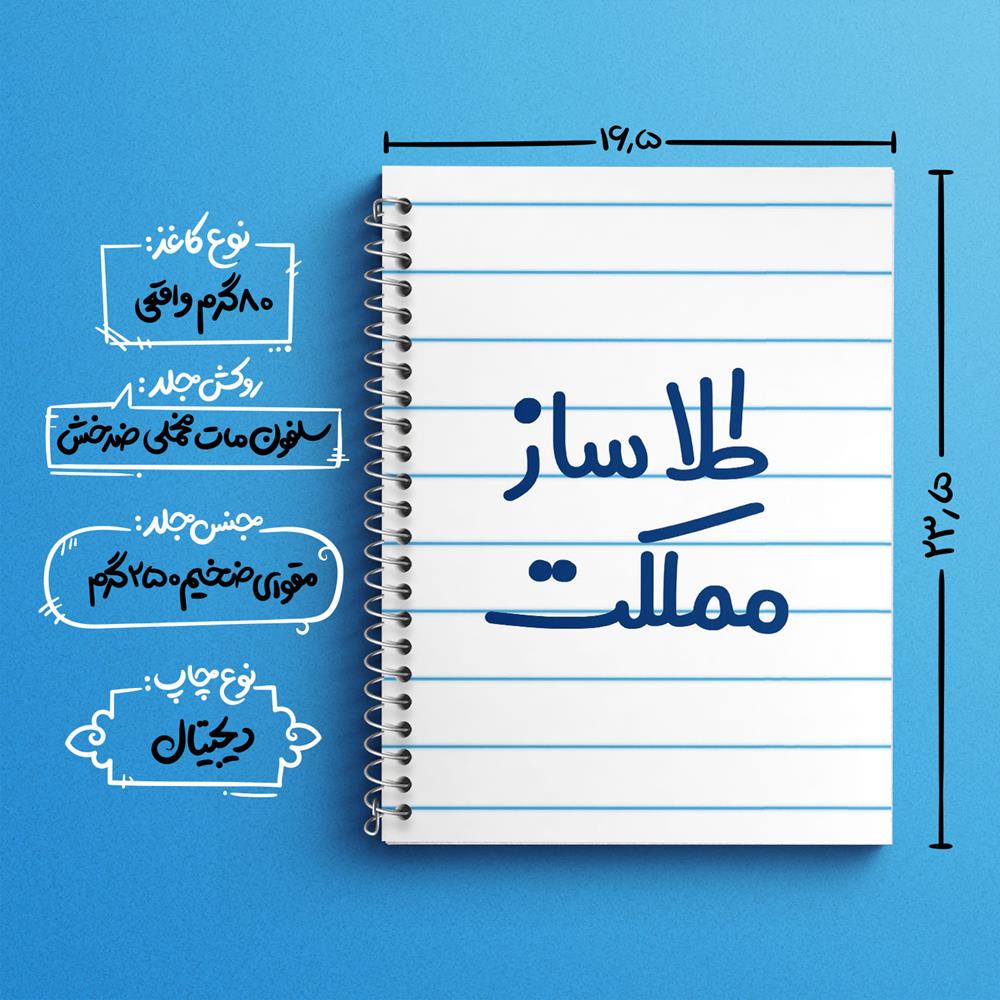 ۱۶,۵
۲۳,۵
نوع کاغذ:
۸۰ گرم واقعی
روکش جلد:
سلفون مات مخملی ضدخش
جنس جلد:
مقوای ضخیم ۲۵۰ گرم
نوع چاپ:
دیجیتال
طلا ساز
مملکت